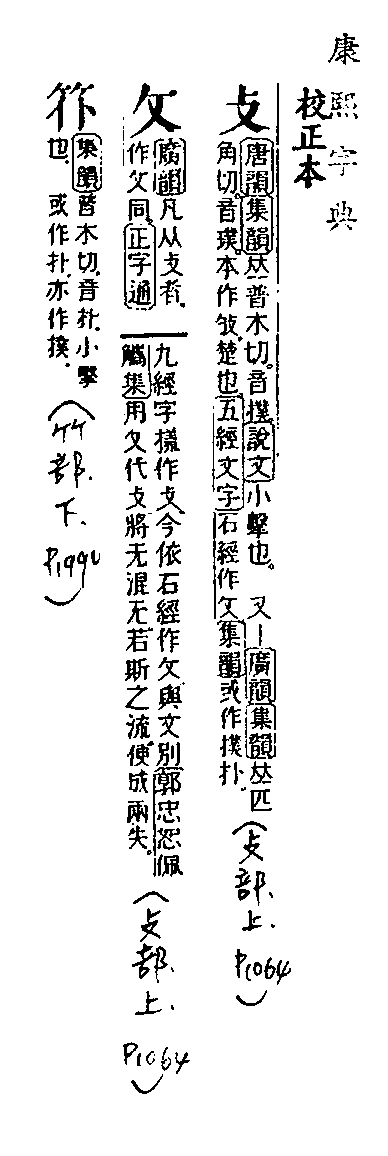 康熙字典
校正本
攴
唐韻集韻𠀤普木切。音撲。說文小擊也。又一廣韻集韻𠀤匹
角切。音璞。本作楚也五經文字石經作攵集韻或作撲扑。
(攴部.上.P1064)
攵
廣韻凡从攴者,
作攵同,正字通
九經字樣作攴今依石經作攵與文別郭忠恕佩
觿集用攵代攴將无混旡若斯之流,便成兩失。
(攴部.上.P1064)
集韻普木切。音扑。小擊
也。或作扑,亦作撲。
(竹部.下.